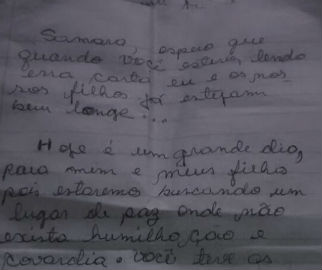 Samara, espero que
quando você estiver lendo
essa carta eu e os nos
sos filhos já estejam
bem longe...
Hoje é um grande dia,
para mim e meus filho
pois estaremo buscando um
lugar de paz onde não
exista humilhação e
covardia. Você teve os